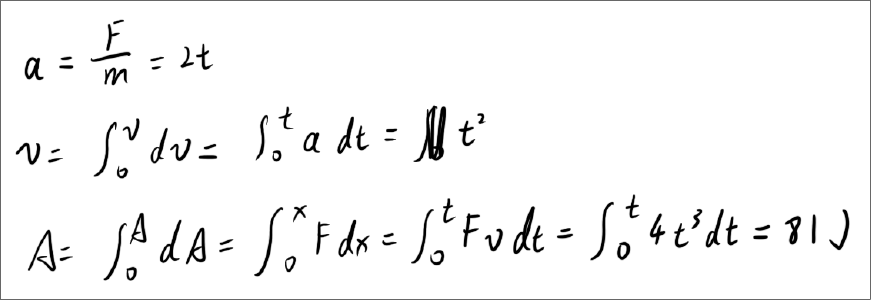 a = F/m = 2t
v = ∫₀^v dv = ∫₀^t a dt = t²
A = ∫₀^A dA = ∫₀^x F dx = ∫₀^t F v dt = ∫₀^t 4t³ dt = 81 J